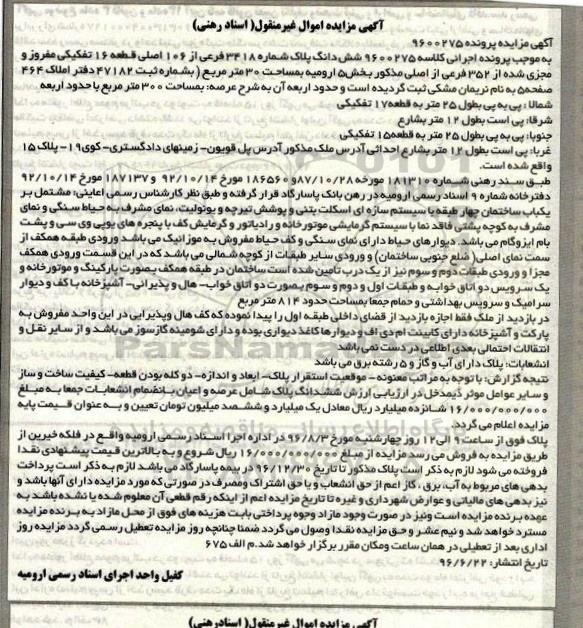 آگهی مزایده اموال غیرمنقول( اسناد رهنی)
آگهی مزایده پرونده ۹۶۰۰۲۷۵
به موجب پرونده اجرائی کلاسه ۹۶۰۰۲۷۵ شش دانگ پلاک شماره ۳۴۱۸ فرعی از ۱۰۶ اصلی قطعه ۱۶ تفکیکی مفروز و
مجزی شده از ۳۵۲ فرعی از اصلی مذکور بخش۵ ارومیه بمساحت ۳۰ متر مربع ( بشماره ثبت ۴۷۱۸۲ دفتر املاک ۴۶۴
صفحه۵ به نام نریمان مشکی ثبت گردیده است و حدود اربعه آن به شرح عرصه: بمساحت ۳۰۰ متر مربع با حدود اربعه
شمالا : پی به پی بطول ۲۵ متر به قطعه۱۷ تفکیکی
شرقا: پی است بطول ۱۲ متر بشارع
جنوبا: پی به پی بطول ۲۵ متر به قطعه۱۵ تفکیکی
غربا: پی است بطول ۱۲ متر بشارع احداثی آدرس ملک مذکور آدرس پل قویون- زمینهای دادگستری-کوی۱۹- پلاک ۱۵
واقع شده است.
طبق سند رهنی شماره ۱۸۱۳۱۰ مورخه ۸۷/۱۰/۲۸و ۱۸۶۵۶۰ مورخ ۹۲/۱۰/۱۴ و ۱۸۷۱۳۷ مورخ ۹۲/۱۰/۱۴
دفترخانه شماره ۹ اسناد رسمی ارومیه در رهن بانک پاسارگاد قرار گرفته و طبق نظر کارشناس رسمی اعلینی: مشتمل بر
یکباب ساختمان چهار طبقه با سیستم سازه ای اسکلت بتنی و پوشش تیرچه و یونولیت، نمای مشرف به حیاط سنگی و نمای
مشرف به کوچه پشتی فاقد نما با سیستم گرمایشی موتورخانه و رادیاتور و گرمایش کف با پنجره های یو پی وی سی و پشت
بام ایزوگام می باشد. دیوارهای حیاط دارای نمای سنگی و کف حیاط مفروش به موزائیک می باشد ورودی طبقه همکف از
سمت نمای اصلی( ضلع جنوبی ساختمان) و ورودی سایر طبقات از کوچه شمالی می باشد که در این قسمت ورودی همکف
مجزا و ورودی طبقات دوم و سوم نیز از یک درب تامین شده است ساختمان در طبقه همکف بصورت پارکینگ و موتورخانه و
یک سرویس دو اتاق خوابه و طبقات اول و دوم و سوم بصورت دو اتاق خواب- هال و پذیرائی- آشپزخانه با کف و دیوار
سرامیک و سرویس بهداشتی و حمام جمعا بمساحت حدود ۸۱۴ متر مربع
در بازدید از ملک فقط اجازه بازدید از فضای داخلی طبقه اول را پیدا نموده که کف هال وپذیرایی در این واحد مفروش به
پارکت و آشپزخانه دارای کابینت ام دی اف و دیوارها کاغذ دیواری بوده و دارای شومینه گازسوز می باشد و از سایر نقل و
انتقالات احتمالی بعدی اطلاعی در دست نمی باشد
انشعابات: پلاک دارای آب و گاز و ۵ رشته برق می باشد
نتیجه گزارش: با توجه به مراتب معنونه- موقعیت استقرار پلاک- ابعاد و اندازه- دو کله بودن قطعه-کیفیت ساخت و ساز
و سایر عوامل موثر ذیمدخل در ارزیابی ارزش ششدانگ پلاک شامل عرصه و اعیان بانضمام انشعابات جمعا به مبلغ
۱۶/۰۰۰/۰۰۰/۰۰۰ شانزده میلیارد ریال معادل یک میلیارد و ششصد میلیون تومان تعیین و به عنوان قیمت پایه
مزایده اعلام می گردد.
پلاک فوق از ساعت ۹ الی۱۲ روز چهارشنبه مورخ ۹۶/۸/۳ در اداره اجرا اسناد رسمی ارومیه واقع در فلکه خیرین از
طریق مزایده به فروش می رسد مزایده از مبلغ ۱۶/۰۰۰/۰۰۰/۰۰۰ ریال شروع و به بالاترین قیمت پیشنهادی نقدا
فروخته می شود لازم به ذکر است پلاک مذکور تا تاریخ ۹۶/۱۲/۳۰ در بیمه پاسارگاد می باشد لازم به ذکر است پرداخت
بدهی های مربوط به آب، برق ، گاز اعم از حق انشعاب و یا حق اشتراک ومصرف در صورتی که مورد مزایده دارای آنها باشد و
نیز بدهی های مالیاتی و عوارض شهرداری و غیره تا تاریخ مزایده اعم از اینکه رقم قطعی آن معلوم شده یا نشده باشد به
عهده برنده مزایده است ونیز در صورت وجود مازاد وجوه پرداختی بابت هزینه های فوق از محل مازاد به برنده مزایده
مسترد خواهد شد و نیم عشر و حق مزایده نقدا وصول می گردد ضمنا چنانچه روز مزایده تعطیل رسمی گردد مزایده روز
اداری بعد از تعطیلی در همان ساعت ومکان مقرر برگزار خواهد شد.م الف ۶۷۵
تاریخ انتشار: ۹۶/۶/۲۲
کفیل واحد اجرای اسناد رسمی ارومیه
آگهی مزایده اموال غیرمنقول( اسنادرهنی)